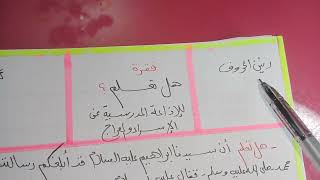 رنين الحروف
فقرة
هل تعلم ؟
للإذاعة المدرسية عن
الإسراء والمعراج
- هل تعلم أن سيدنا إبراهيم عليه السلام قد أبلغكم رسالة
محمد صلى الله عليه وسلم - فقال